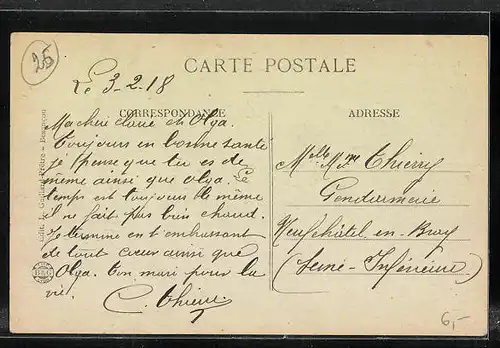 25
CARTE POSTALE
Le 3-2-18
CORRESPONDANCE
ADRESSE
Ma chère et Olga.
Toujours en bonne santé
je pense que tu es de
même ainsi que Olga. Le
temps est toujours le même
il ne fait pas bien chaud.
Je termine en t'embrassant
de tout cœur ainsi que
Olga. Ton mari pour la
vie.
C. Thierry
Mme Thierry
Gendarmerie
Neufchâtel en Bray
(Seine-Inférieure)
Édit. Besançon
6,-